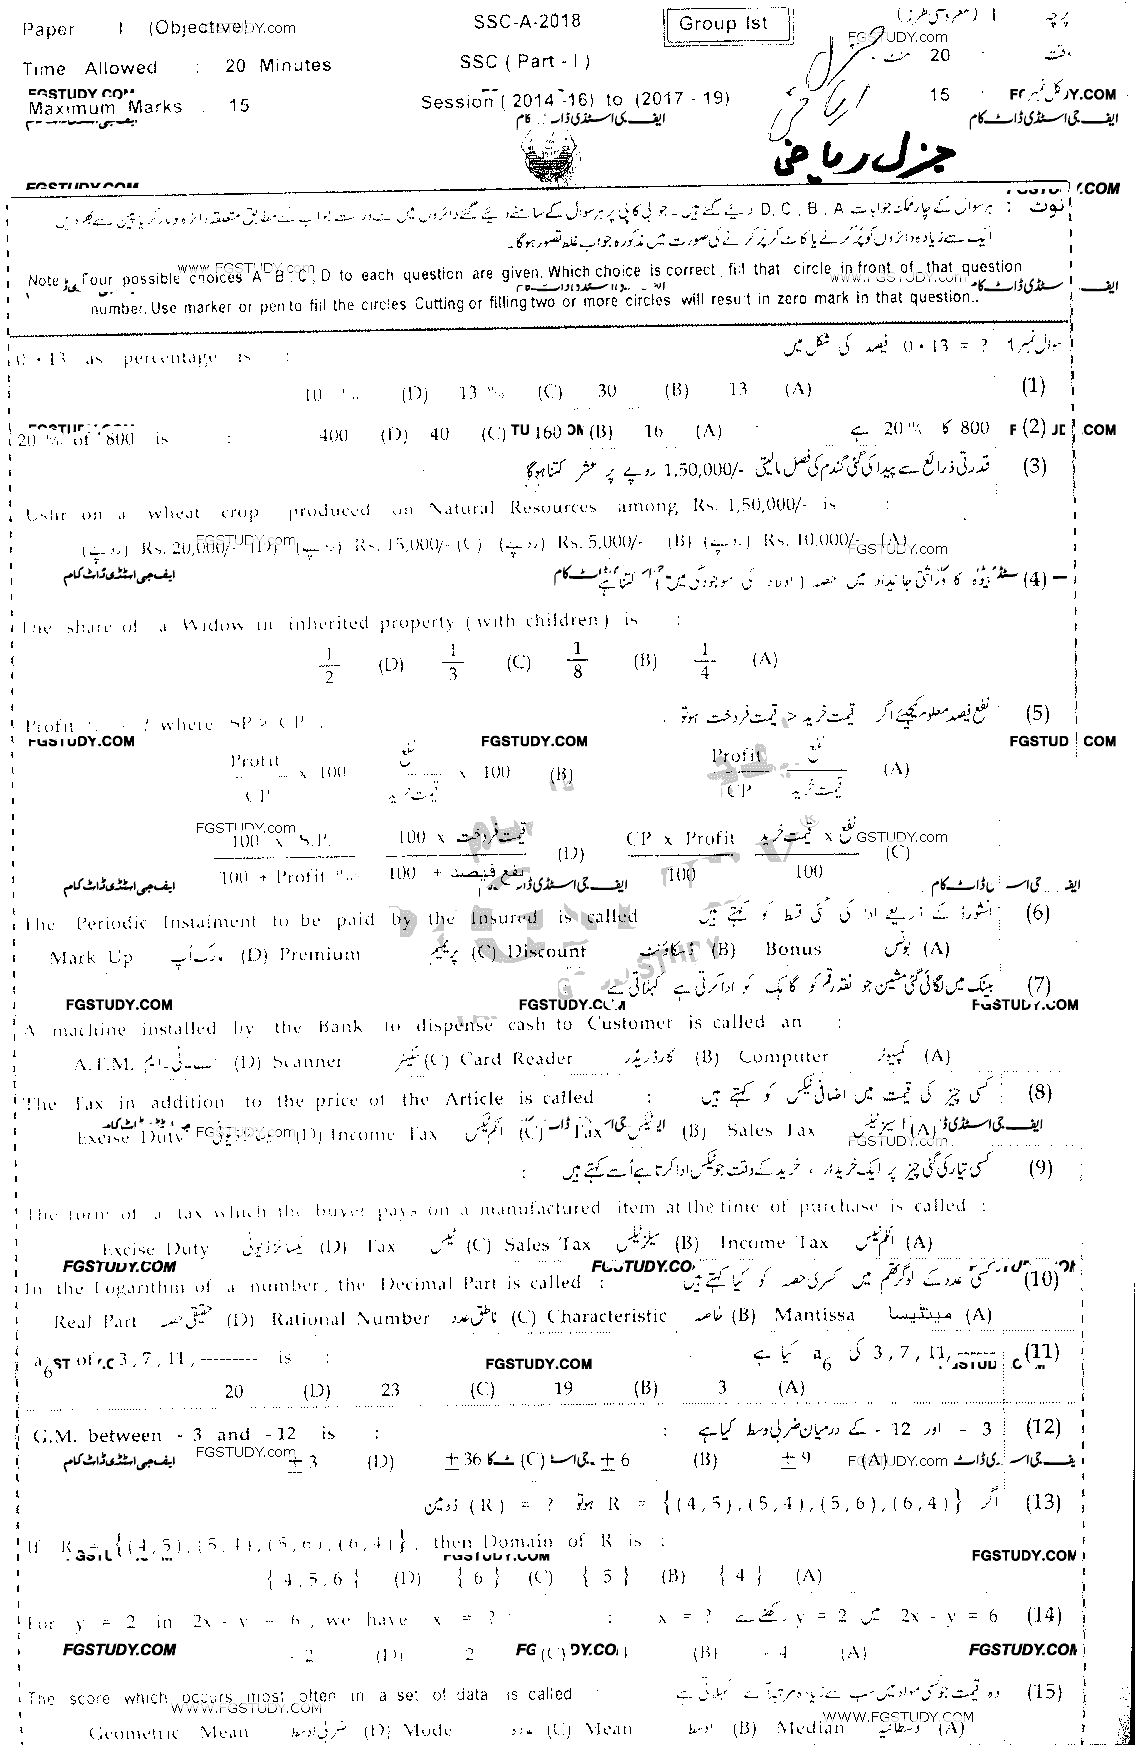 Paper I (Objective) SSC-A-2018 Group Ist پرچہ I (معروضی طرز)
Time Allowed : 20 Minutes SSC (Part - I) وقت 20 منٹ
Maximum Marks : 15 Session (2014 -16) to (2017 - 19) کل نمبر 15
جنرل ریاضی
نوٹ : ہر سوال کے چار ممکنہ جوابات D, C, B, A دیئے گئے ہیں۔ جوابی کاپی پر ہر سوال کے سامنے دیئے گئے دائروں میں سے درست جواب کے مطابق متعلقہ دائرہ کو مارکر یا پین سے بھر دیں
ایک سے زیادہ دائروں کو پُر کرنے یا کاٹ کر پُر کرنے کی صورت میں مذکورہ جواب غلط تصور ہوگا۔
Note : Four possible choices A, B, C, D to each question are given. Which choice is correct, fill that circle in front of that question
number. Use marker or pen to fill the circles Cutting or filling two or more circles will result in zero mark in that question..
سوال نمبر 1 0.13 = ? فیصد کی شکل میں
0.13 as percentage is :
10 % (D) 13 % (C) 30 (B) 13 (A) (1)
20 % of 800 is : 400 (D) 40 (C) 160 (B) 16 (A) 800 کا 20 % ہے (2)
(3) قدرتی ذرائع سے پیدا کی گئی گندم کی فصل مالیتی 1,50,000/- روپے پر عشر کتنا ہوگا
Ushr on a wheat crop produced on Natural Resources among Rs. 1,50,000/- is :
(روپے) Rs. 20,000/- (D) (روپے) Rs. 15,000/- (C) (روپے) Rs. 5,000/- (B) (روپے) Rs. 10,000/- (A)
(4) بیوہ کا وراثتی جائیداد میں حصہ (اولاد کی موجودگی میں) کتنا ہے
The share of a Widow in inherited property (with children) is :
1/2 (D) 1/3 (C) 1/8 (B) 1/4 (A)
(5) نفع فیصد معلوم کیجئے اگر قیمت خرید < قیمت فروخت ہو تو
Profit % = ? where SP > CP .
Profit/CP x 100 نفع/قیمت خرید x 100 (B) Profit/CP نفع/قیمت خرید (A)
100 x S.P./100 + Profit % 100 x قیمت فروخت/100 + نفع فیصد (D) CP x Profit/100 نفع x قیمت خرید/100 (C)
The Periodic Instalment to be paid by the Insured is called انشورڈ کے ذریعے ادا کی گئی قسط کو کہتے ہیں (6)
Mark Up مارک اَپ (D) Premium پریمیم (C) Discount ڈسکاؤنٹ (B) Bonus بونس (A)
(7) بینک میں لگائی گئی مشین جو نقد رقم کو گاہک کو ادا کرتی ہے کہلاتی ہے
A machine installed by the Bank to dispense cash to Customer is called an :
A.T.M. اے۔ٹی۔ایم (D) Scanner سکینر (C) Card Reader کارڈ ریڈر (B) Computer کمپیوٹر (A)
The Tax in addition to the price of the Article is called : کسی چیز کی قیمت میں اضافی ٹیکس کو کہتے ہیں (8)
Excise Duty (D) Income Tax انکم ٹیکس (C) Tax (B) Sales Tax سیلز ٹیکس (A)
(9) کسی تیار کی گئی چیز پر ایک خریدار ، خرید کے وقت جو ٹیکس ادا کرتا ہے اُسے کہتے ہیں :
The form of a tax which the buyer pays on a manufactured item at the time of purchase is called :
Excise Duty ایکسائز ڈیوٹی (D) Tax ٹیکس (C) Sales Tax سیلز ٹیکس (B) Income Tax انکم ٹیکس (A)
In the Logarithm of a number, the Decimal Part is called : کسی عدد کے لوگرتھم میں کسری حصہ کو کیا کہتے ہیں (10)
Real Part حقیقی حصہ (D) Rational Number ناطق عدد (C) Characteristic خاصہ (B) Mantissa مینٹیسا (A)
a6 of 3, 7, 11, --------- is : 3, 7, 11, ------ کی a6 کیا ہے (11)
20 (D) 23 (C) 19 (B) 3 (A)
G.M. between - 3 and - 12 is : : - 3 اور - 12 کے درمیان ضربی وسط کیا ہے (12)
± 3 (D) ± 36 (C) ± 6 (B) ± 9 (A)
(13) اگر R = {(4,5),(5,4),(5,6),(6,4)} ہو تو (R) = ? ڈومین
If R = {(4,5),(5,4),(5,6),(6,4)}, then Domain of R is :
{ 4,5,6 } (D) { 6 } (C) { 5 } (B) { 4 } (A)
For y = 2 in 2x - y = 6, we have x = ? : x = ? 2x - y = 6 میں y = 2 رکھنے سے (14)
- 2 (D) 2 (C) (B) - 4 (A)
The score which occurs most often in a set of data is called : وہ قیمت جو کسی مواد میں سب سے زیادہ مرتبہ آئے کہلاتی ہے (15)
Geometric Mean ضربی اوسط (D) Mode عادہ (C) Mean اوسط (B) Median وسطانیہ (A)
FGSTUDY.COM
WWW.FGSTUDY.COM
ایف جی اسٹڈی ڈاٹ کام